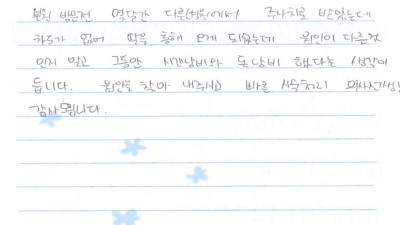 본원 방문전 몇달간 다른병원에서 주사치료 받았는데
차도가 없어 딱을 통해 오게 되었는데 원인이 다른것
인지 알고 그동안 시간낭비와 돈낭비 했다는 생각이
듭니다. 원인을 찾아 내주시고 빠른 시술처리 의사선생님
감사드립니다.